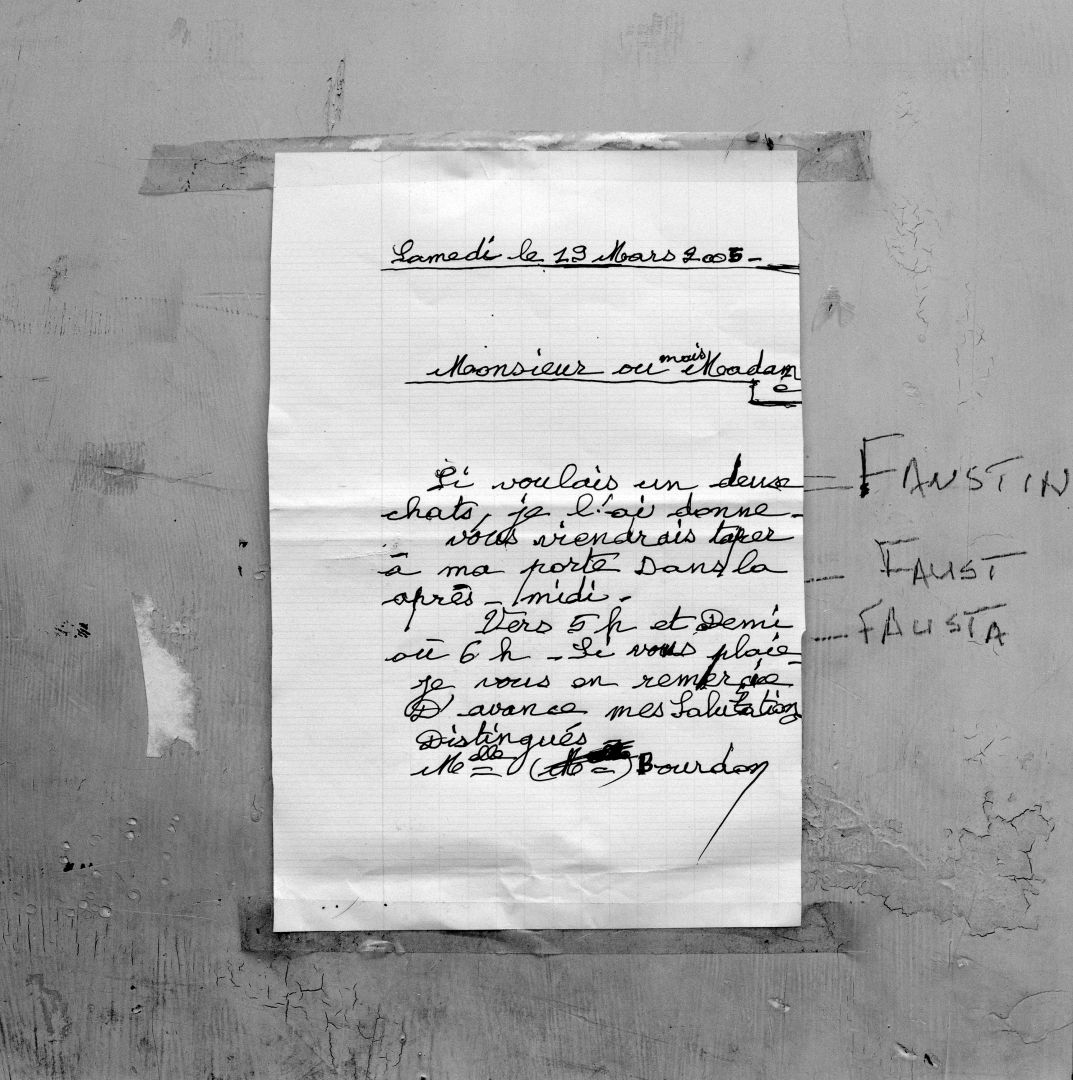 Samedi le 19 Mars 2005 -
Monsieur ou mais Moadame
Si voulais un deux
chats, je l'ai donne -
vous viendrais taper
à ma porte Dans la
après - midi -
Vers 5 h et Demi
où 6 h - Si vous plaie
je vous en remercie
D'avance mes Salutation
Distingués
Melle (Me) Bourdon
FAUSTIN
FAUST
FAUSTA